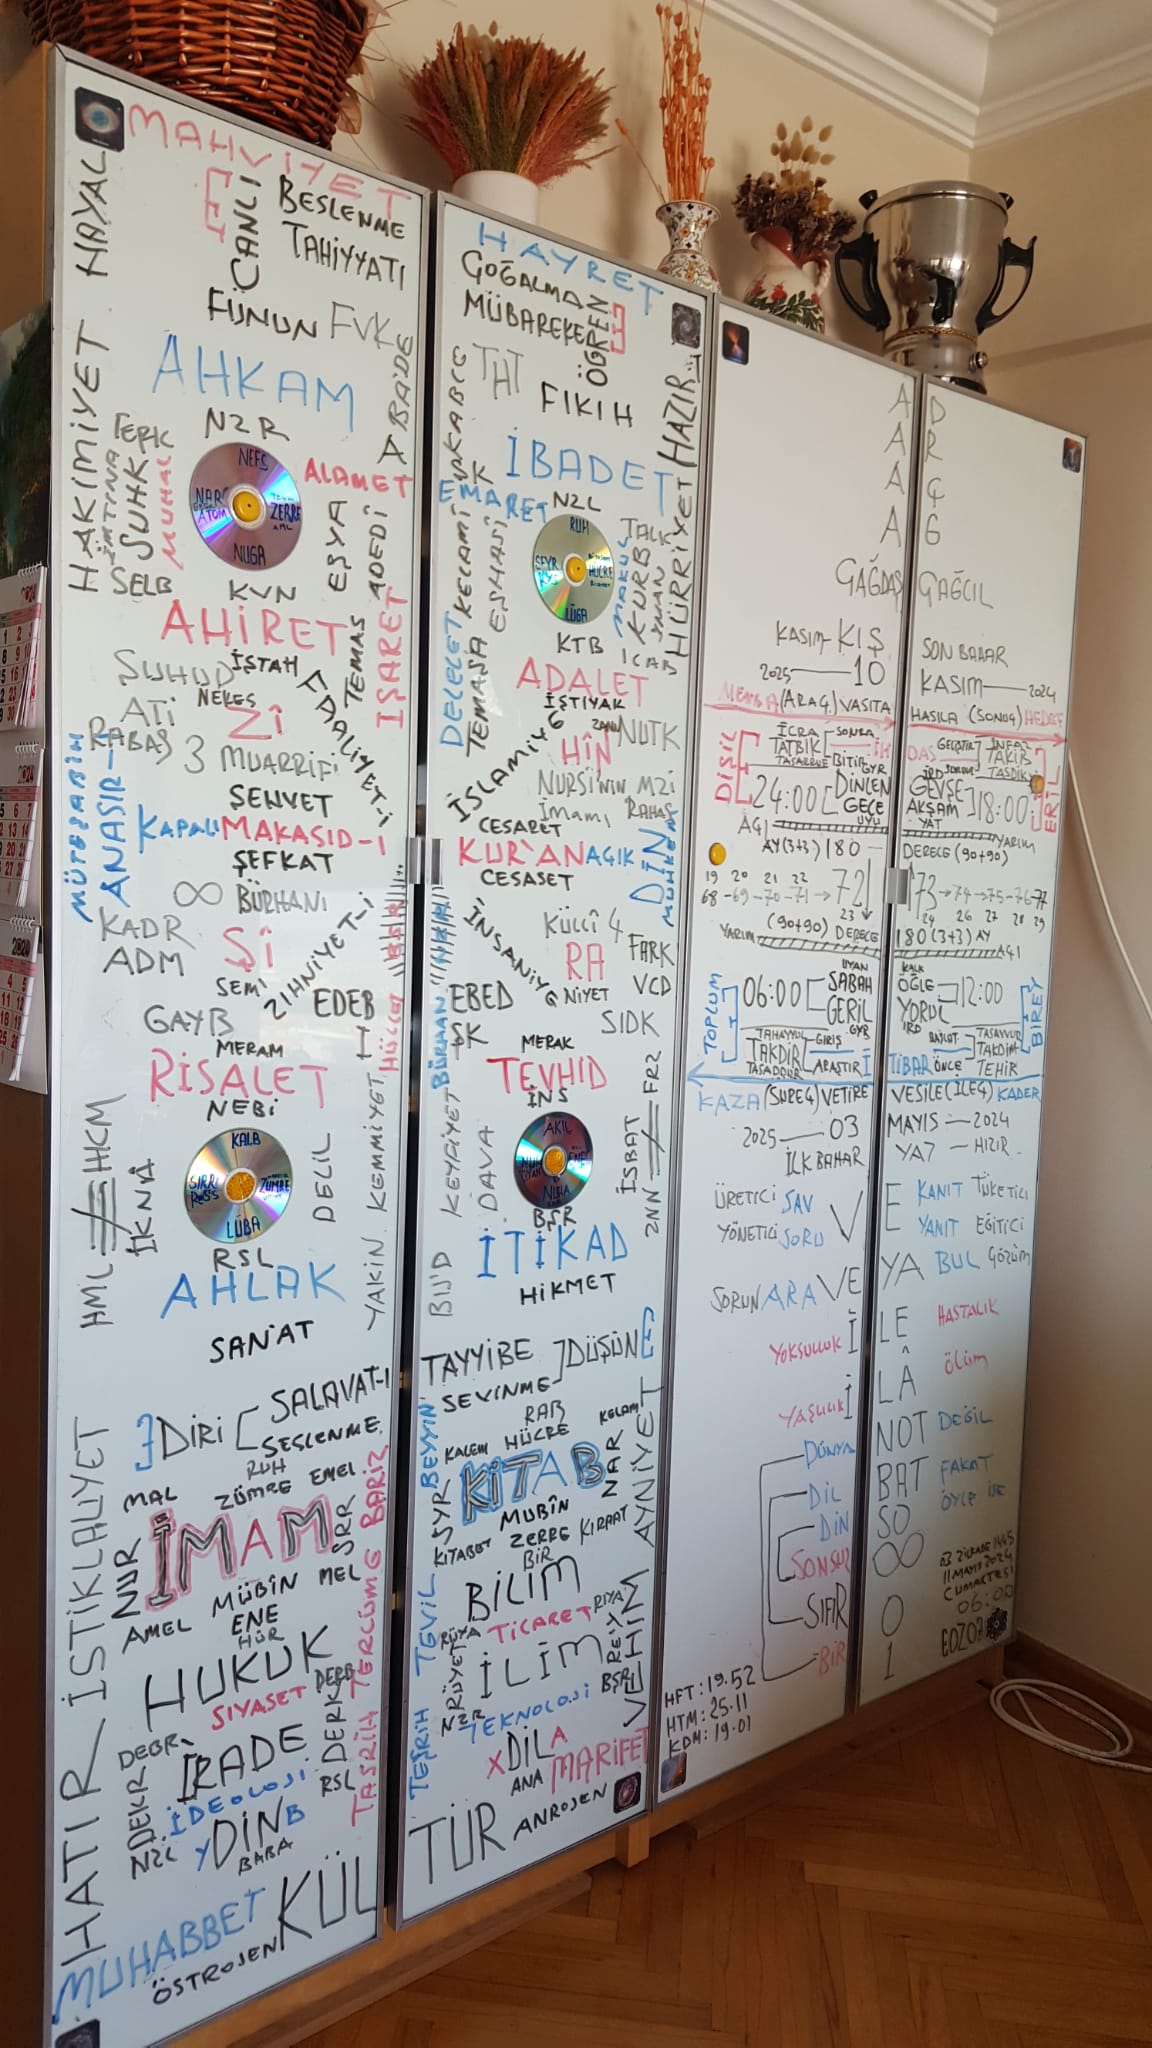 MAHVİYET
HAYAL
CANLI
BESLENME
TAHİYYATI
FÜNUN FVK
AHKAM
ABAİDE
HAKİMİYET
TERK
İMTİNA
SUHK
MUHAL
SELB
NZR
NEFS
NUGA
ZERRE
ATOM
ALAMET
EŞYA
ADEDİ
KVN
AHİRET
İŞARET
ŞUHUD
İŞTAH
TEMAS
NEKES
ATİ
ZÎ
FAALİYET-İ
RABAŞ
3 MUARRİFİ
MÜTEŞABİH
ANASIR-I
ŞEHVET
KAPALI MAKASID-I
ŞEFKAT
∞ BÜRHANI
KADR
ADM
Şİ
SEMİ
ZİHNİYET-İ
EDEB
GAYB
MERAM
RİSALET
NEBİ
HML HCM
İKNÂ
KALB
ZÜMRE
LÜBA
DELİL
KEMMİYET
YAKİN
RSL
AHLAK
SAN'AT
DİRİ
SALAVAT-I
SESLENME
RUH
MAL
ZÜMRE
EMEL
İMAM
NUR
SRR
AMEL
MÜBÎN
MEL
ENE
HÜR
HUKUK
SİYASET
DERB
DERK
DEBR
DEKR
İRADE
İDEOLOJİ
RSL
NZL
YDİNB
BABA
HATIR İSTİKLALİYET
TASRİH TERCÜME BARİZ
MUHABBET
KÜL
ÖSTROJEN
HAYRET
ÇOĞALMA
MÜBAREKE
ÖĞREN
THT
FIKIH
HAZIR...
İBADET
EMARET
NZL
RUH
HÜCRE
LÜGA
TALK
KURB
MAKUL
İMAN
İCAB
HÜRRİYET
KELAMİ
EŞHASİ
KTB
DELELET
TEMAŞA
ADALET
İŞTİYAK
İSLAMİYE
HİN
NUTK
NURSİ'NİN MZİ
İMAMI
RAHAŞ
CESARET
KUR'AN AÇIK
CESASET
DİN
MUHKEM
İNSANİYE
KÜLLÎ 4
RA
FARK
NİYET
VCD
EBED
ŞK
SIDK
MERAK
TEVHİD
İNS
BÜRHAN
KEYFİYET
DAVA
AKIL
NUHA
İSBAT
ZNN FRZ
BŞR
İTİKAD
HİKMET
TAYYİBE
SEVİNME
DÜŞÜN
RAB
KELAM
KALEM
HÜCRE
KİTAB
NAR
SYR
MUBÎN
KİTABET
ZERRE
KIRAAT
BİR
BİLİM
RÜYA
TİCARET
RİYA
RÜYET
İLİM
REİY
NZR
TEKNOLOJİ
BŞR
XDİLA
ANA
MARİFET
TEŞRİH TEVİL BEYYİN
VEHİM AYNİYET
TÜR
ANROJEN
A
A
A
A
ÇAĞDAŞ
KASIM-KIŞ
2025 — 10
MENBA (ARAÇ) VASITA
DİŞİL
İCRA
TATBİK
TASARRUF
SONRA
BİTİR
24:00
DİNLEN
GEÇE
UYU
AÇI
AY(3+3) 180
19 20 21 22
68-69-70-71→72
23
(90+90) DERECE
YARIM
TOPLUM
06:00
UYAN
SABAH
GERİL
TAHAYYÜL
TAKDİR
TASADDUR
GİRİŞ
ARAŞTIR
KAZA (SÜREÇ) VETİRE
2025 — 03
İLK BAHAR
ÜRETİCİ SAV
YÖNETİCİ SORU
V
SORUN ARA VE
YOKSULLUK İ
YAŞLILIK İ
DÜNYA
DİL
DİN
SONSUZ
SIFIR
BİR
HFT: 19.52
HTM: 25.11
KDM: 19.01
D
R
Ç
G
ÇAĞCIL
SON BAHAR
KASIM — 2024
HASILA (SONUÇ) HEDEF
DAS
GELİŞTİR
İNFAZ
TAKİB
TASDİK
GEVŞE
AKŞAM
YAT
18:00
ERİL
YARIM
DERECE (90+90)
73→74→75-76-77
24 26 27 28 29
180 (3+3) AY
AÇI
KALK
ÖĞLE
YORUL
12:00
BİREY
TASAVVUR
TAKDİM
TEHİR
TİBAR ÖNCE
VESİLE (İLEÇ) KADER
MAYIS — 2024
YAZ — HIZIR
E
KANIT TÜKETİCİ
YANIT EĞİTİCİ
YA BUL ÇÖZÜM
LE HASTALIK
LÂ ÖLÜM
NOT DEĞİL
BAT FAKAT
SO ÖYLE İSE
∞
0
1
03 ZİLKADE 1445
11 MAYIS 2024
CUMARTESİ
06:00